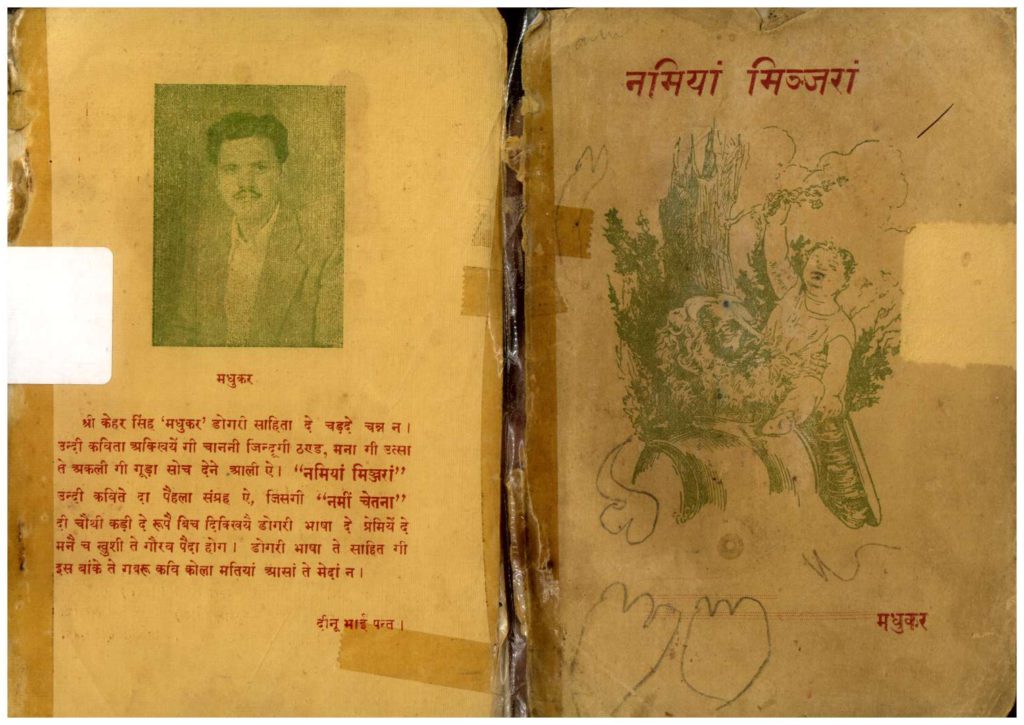 मधुकर
श्री केहर सिंह 'मधुकर' डोगरी साहिता दे चड़दे चन्न न ।
उन्दी कविता अक्खियें गी चाननी जिन्दूगी ठण्ड, मना गी उत्सा
ते अकली गी गूड़ा सोच देने आली ऐ । "नमियां मिञ्जरां"
उन्दी कविते दा पैहला संग्रह ऐ, जिसगी "नमीं चेतना"
दी चौथी कड़ी दे रूपै बिच दिक्खियै डोगरी भाषा दे प्रेमियें दे
मनै च खुशी ते गौरव पैदा होग । डोगरी भाषा ते साहित गी
इस बांके ते गबरू कवि कोला मतियां आसां ते मेदां न ।
दीनू भाई पन्त ।
नमियां मिञ्जरां
मधुकर